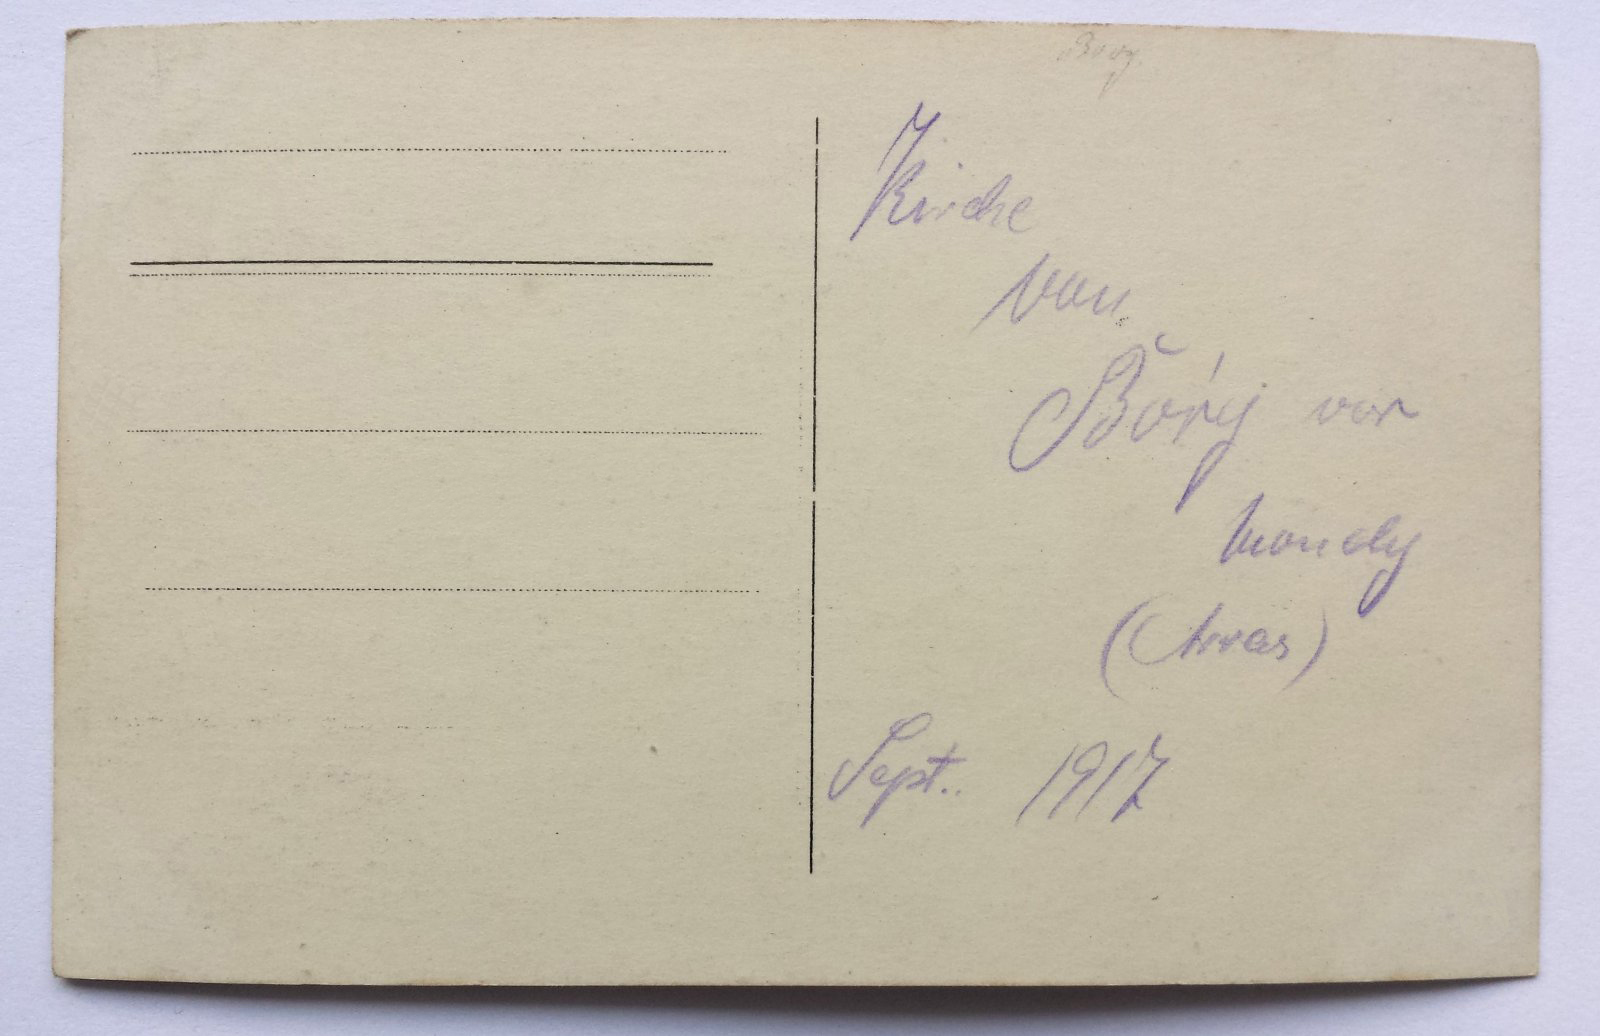 Borg.
Kirche
von
Bory vor
Monchy
(Arras)
Sept. 1917